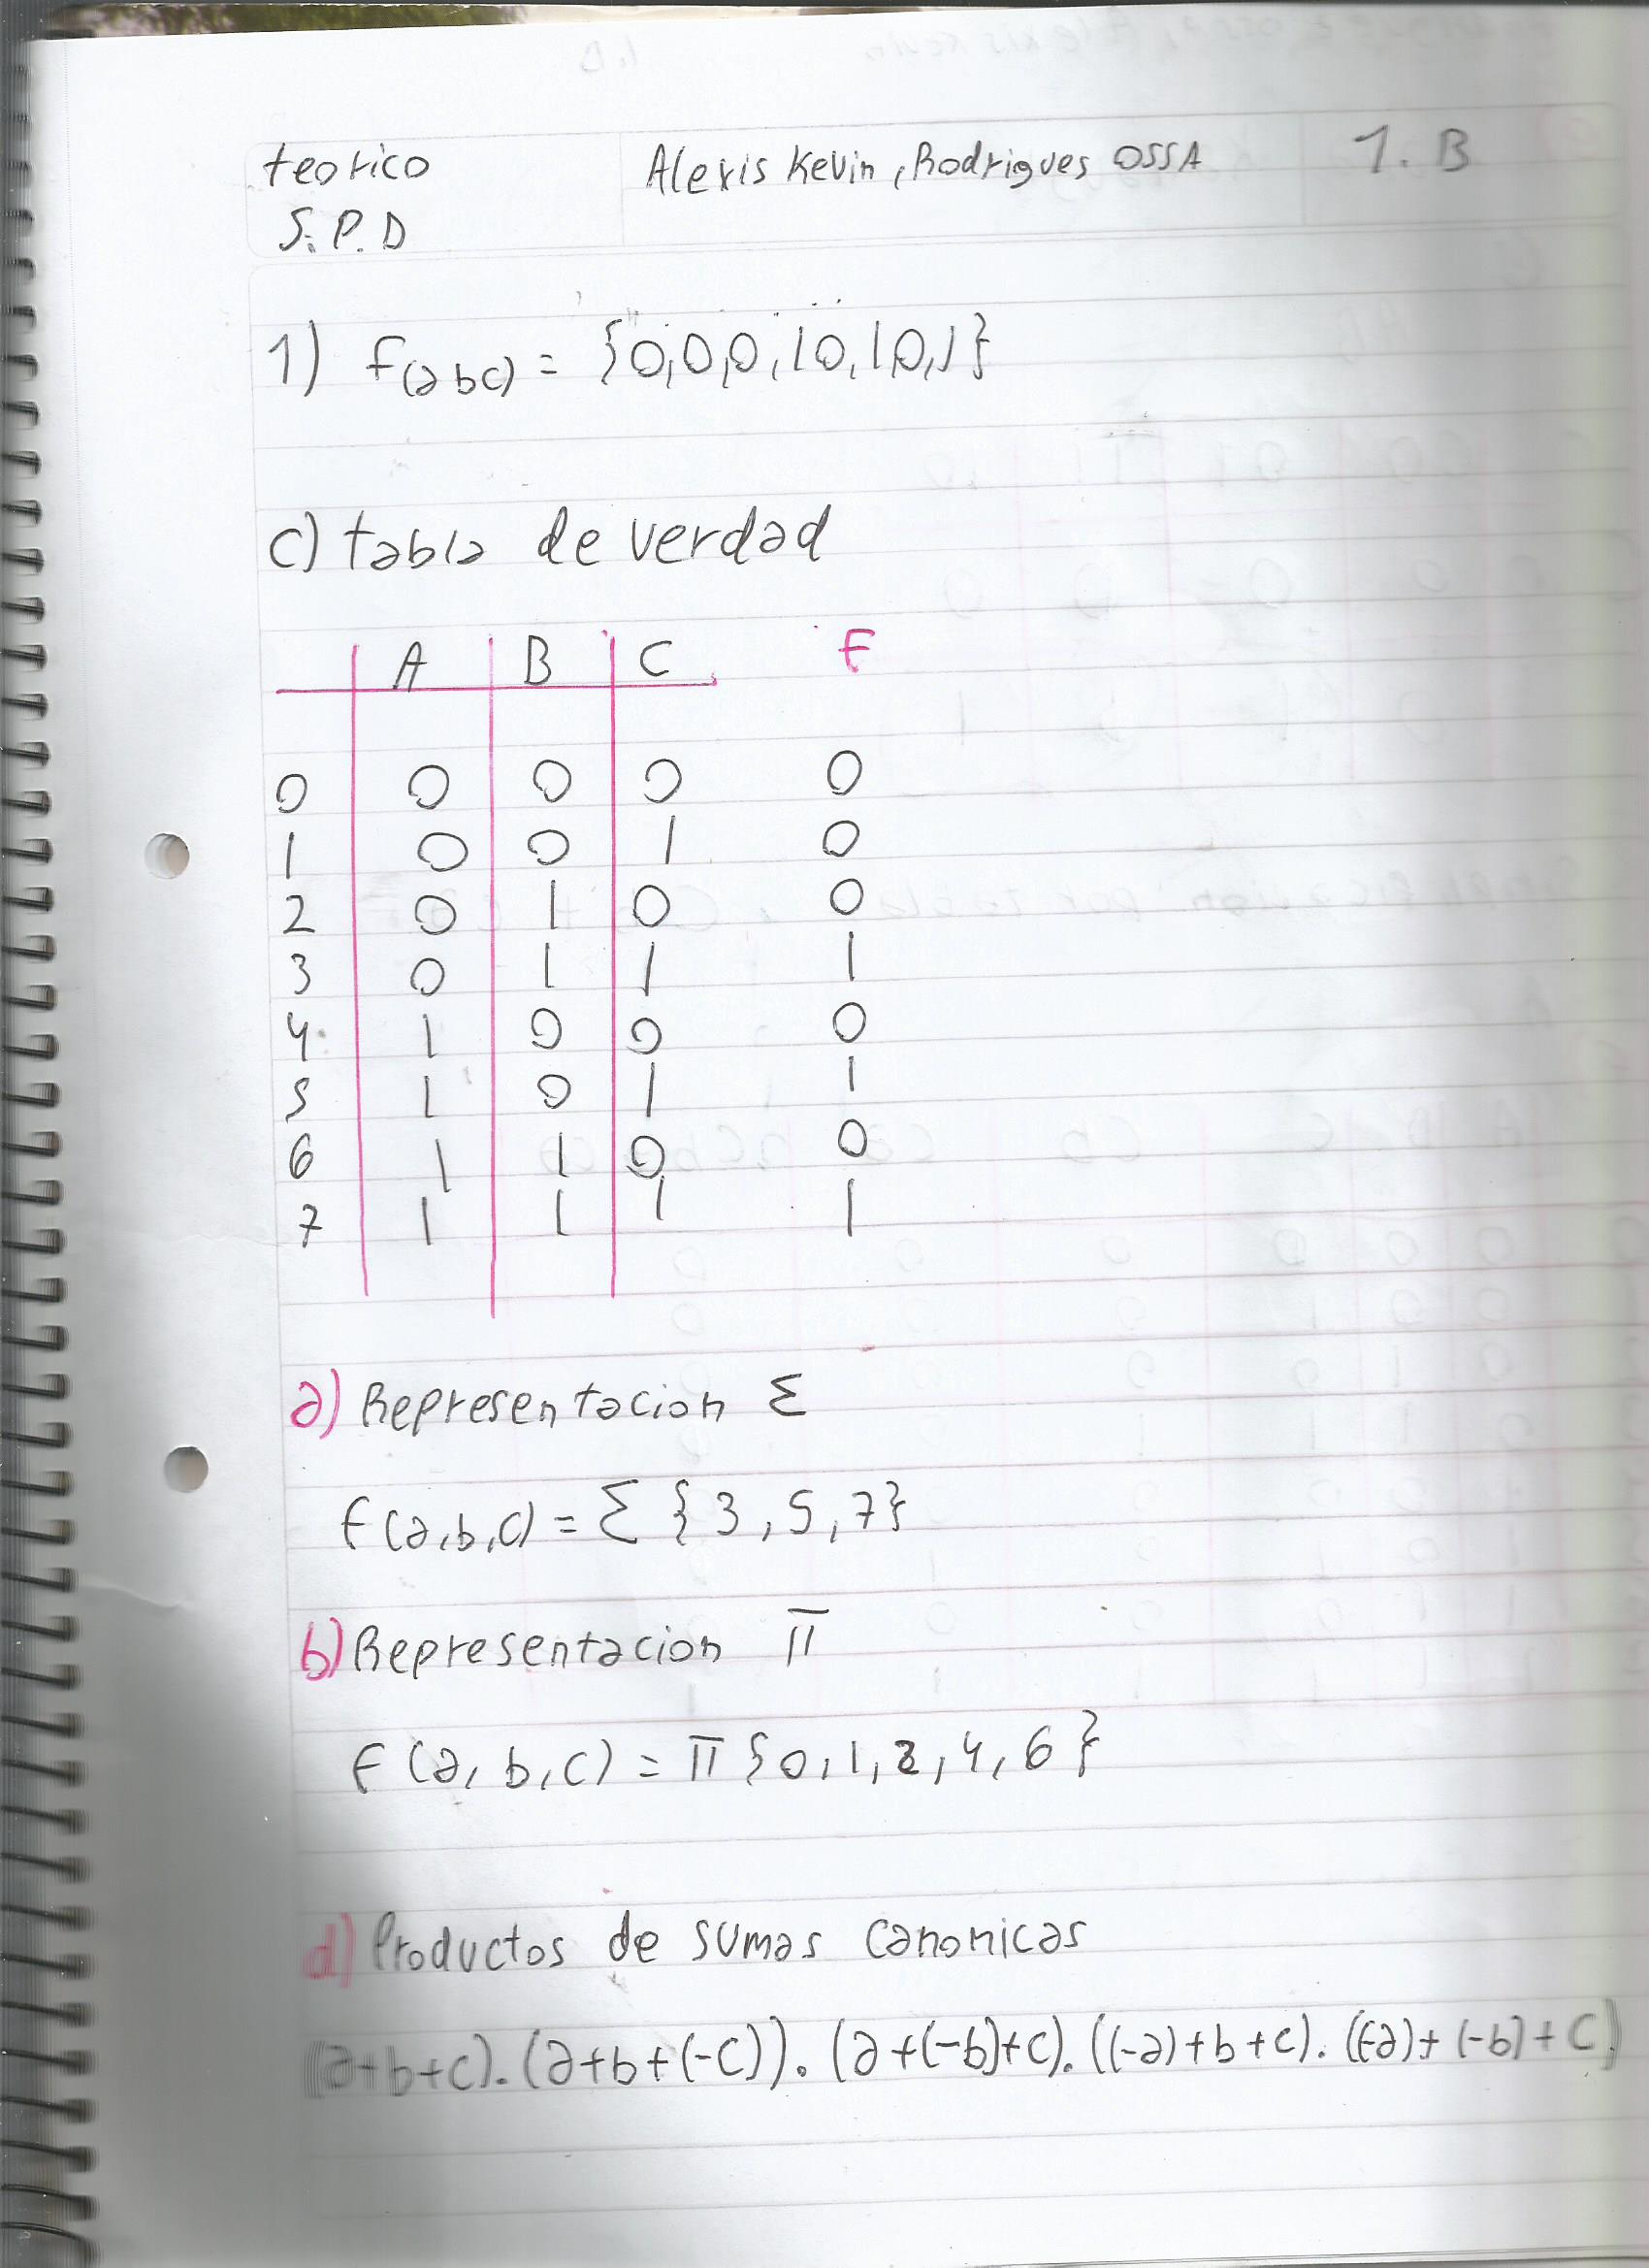 teorico
Alexis Kevin, Rodrigues OSSA
1. B
S.P.D
1) F(abc) = {0,0,0,10,10,1}
c) tabla de verdad
A B C F
0 0 0 0 0
1 0 0 1 0
2 0 1 0 0
3 0 1 1 1
4 1 0 0 0
5 1 0 1 1
6 1 1 0 0
7 1 1 1 1
a) Representacion Σ
f(a,b,c) = Σ {3,5,7}
b) Representacion π
f(a,b,c) = π {0,1,2,4,6}
d) Productos de sumas canonicas
(a+b+c).(a+b+(-c)).(a+(-b)+c).((-a)+b+c).((-a)+(-b)+c)